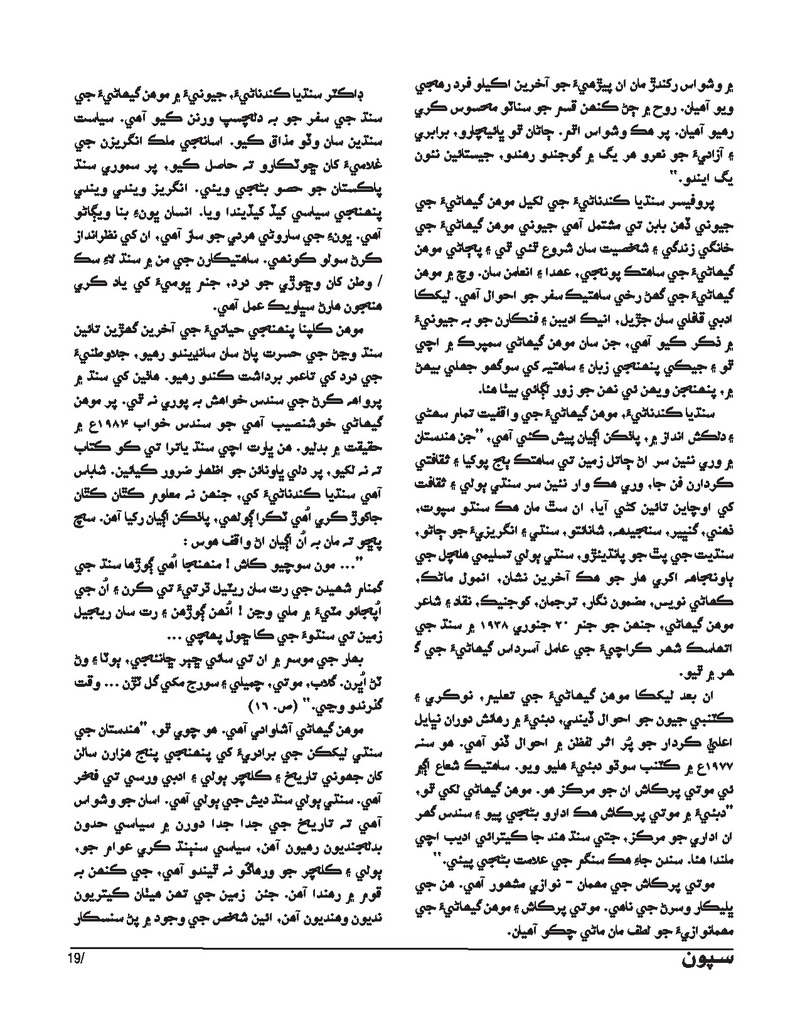 ۾ وشواس رکندڙ مان ان پيڙهيءَ جو آخرين اڪيلو فرد رهجي
ويو آهيان. روح ۾ ڄڻ ڪنهن قسم جو سناٽو محسوس ڪري
رهيو آهيان. پر هڪ وشواس اٿم. ڄاڻان ٿو ڀائيچارو، برابري
۽ آزاديءَ جو نعرو هر يگ ۾ گونجندو رهندو، جيستائين نئون
يگ ايندو."
پروفيسر سنڌيا ڪندناڻيءَ جي لکيل موهن گيهاڻيءَ جي
جيوني ڏهن بابن تي مشتمل آهي جيوني موهن گيهاڻيءَ جي
خانگي زندگي ۽ شخصيت سان شروع ٿئي ٿي ۽ پڄاڻي موهن
گيهاڻيءَ جي ساهتڪ پونجي، عهدا ۽ انعامن سان. وچ ۾ موهن
گيهاڻيءَ جي گهڻ رخي ساهتيڪ سفر جو احوال آهي. ليکڪا
ادبي قافلي سان جڙيل، انيڪ اديبن ۽ فنڪارن جو به جيونيءَ
۾ ذڪر ڪيو آهي، جن سان موهن گيهاڻي سمپرڪ ۾ اچي
ٿو ۽ جيڪي پنهنجي زبان ۽ ساهتيه کي سوگهو جهلي بيهڻ
۾، پنهنجن ويهن ئي نهن جو زور لڳائي بيٺا هئا.
سنڌيا ڪندناڻيءَ، موهن گيهاڻيءَ جي واقفيت تمام سهڻي
۽ دلڪش انداز ۾، پاٺڪن اڳيان پيش ڪئي آهي، "جن هندستان
۾ وري نئين سر اڻ ڄاتل زمين تي ساهتڪ ٻج پوکيا ۽ ثقافتي
ڪردارن فن جا، وري هڪ وار نئين سر سنڌي ٻولي ۽ ثقافت
کي اوچاين تائين کڻي آيا، ان سٿ مان هڪ سنڌو سپوت،
ذهني، گنڀير، سنجيدهه، شانائتو، سنڌي ۽ انگريزيءَ جو ڄاڻو،
سنڌيت جي پٿ جو پانڌيئڙو، سنڌي ٻولي تسليمي هلچل جي
ٻاونجاهه اکري هار جو هڪ آخرين نشان، انمول ماڻڪ،
ڪهاڻي نويس، مضمون نگار، ترجمان، کوجنيڪ، نقاد ۽ شاعر
موهن گيهاڻي، جنهن جو جنم ۲۰ جنوري ۱۹۳۸ ۾ سنڌ جي
اتهاسڪ شهر ڪراچيءَ جي عامل آسرداس گيهاڻيءَ جي گ
هر ۾ ٿيو.
ان بعد ليکڪا موهن گيهاڻيءَ جي تعليم، نوڪري ۽
ڪٽنبي جيون جو احوال ڏيندي، دبئيءَ ۾ رهائش دوران نڀايل
اعليٰ ڪردار جو پُر اثر لفظن ۾ احوال ڏنو آهي. هو سنه
۱۹۷۷ع ۾ ڪٽنب سوڌو دبئيءَ هليو ويو. ساهتيڪ شعاع اڳ۾
ئي موتي پرڪاش ان جو مرڪز هو. موهن گيهاڻي لکي ٿو،
"دبئيءَ ۾ موتي پرڪاش هڪ ادارو بڻجي پيو ۽ سندس گهر
ان اداري جو مرڪز، جتي سنڌ هند جا ڪيترائي اديب اچي
ملندا هئا. سندن جاءِ هڪ سنگم جي علامت بڻجي پيئي."
موتي پرڪاش جي مهمان - نوازي مشهور آهي. هن جي
ڀليڪار وسرڻ جي ناهي. موتي پرڪاش ۽ موهن گيهاڻيءَ جي
مهمانوازيءَ جو لطف مان ماڻي چڪو آهيان.
ڊاڪٽر سنڌيا ڪندناڻيءَ، جيونيءَ ۾ موهن گيهاڻيءَ جي
سنڌ جي سفر جو به دلچسپ ورنن ڪيو آهي. سياست
سنڌين سان وڏو مذاق ڪيو. اسانجي ملڪ انگريزن جي
غلاميءَ کان ڇوٽڪارو ته حاصل ڪيو، پر سموري سنڌ
پاڪستان جو حصو بڻجي ويئي. انگريز ويندي ويندي
پنهنجي سياسي کيڏ کيڏيندا ويا. انسان ڀونءِ بنا ويڳاڻو
آهي. ڀونءِ جي ساروڻي هرني جو ساڙ آهي، ان کي نظرانداز
ڪرڻ سولو ڪونهي. ساهتيڪارن جي من ۾ سنڌ لاءِ سڪ
/ وطن کان وڇوڙي جو درد، جنم ڀوميءَ کي ياد ڪري
هنجون هارڻ سڀاويڪ عمل آهي.
موهن ڪلپنا پنهنجي حياتيءَ جي آخرين گهڙين تائين
سنڌ وڃڻ جي حسرت پاڻ سان سانڍيندو رهيو، جلاوطنيءَ
جي درد کي تاعمر برداشت ڪندو رهيو. هائين کي سنڌ ۾
پرواهه ڪرڻ جي سندس خواهش به پوري نه ٿي. پر موهن
گيهاڻي خوشنصيب آهي جو سندس خواب ۱۹۸۴ع ۾
حقيقت ۾ بدليو. هن ڀارت اچي سنڌ ياترا تي ڪو ڪتاب
ته نه لکيو، پر دلي ڀاونائن جو اظهار ضرور ڪيائين. شاباس
آهي سنڌيا ڪندناڻيءَ کي، جنهن نه معلوم ڪٿان ڪٿان
جاکوڙ ڪري اُهي ٽڪرا ڳولهي، پاٺڪن اڳيان رکيا آهن. سچ
پڇو ته مان به اُن اڳيان اڻ واقف هوس :
"... مون سوچيو ڪاش ! منهنجا اُهي ڳوڙها سنڌ جي
گمنام شهيدن جي رت سان ريٽيل ڌرتيءَ تي ڪرن ۽ اُن جي
اُپڄائو مٽيءَ ۾ ملي وڃن ! اُنهن ڳوڙهن ۽ رت سان ريجيل
زمين تي سنڌوءَ جي ڪا ڇول پهچي ...
بهار جي موسم ۾ ان تي سائي ڇٻر ڇانئجي، ٻوٽا ۽ وڻ
ٽڻ اُڀرن. گلاب، موتي، چميلي ۽ سورج مکي گل ٽڙن ... وقت
گذرندو وڃي." (ص. ۱۶)
موهن گيهاڻي آشاوادي آهي. هو چوي ٿو، "هندستان جي
سنڌي ليکڪن جي برادريءَ کي پنهنجي پنج هزارن سالن
کان جهوني تاريخ ۽ ڪلچر ٻولي ۽ ادبي ورسي تي فخر
آهي. سنڌي ٻولي سنڌ ديش جي ٻولي آهي. اسان جو وشواس
آهي ته تاريخ جي جدا جدا دورن ۾ سياسي حدون
بدلجنديون رهيون آهن، سياسي سنٻنڌ ڪري عوام جو،
ٻولي ۽ ڪلچر جو ورهاڱو نه ٿيندو آهي، جي ڪنهن به
قوم ۾ رهندا آهن. جئن زمين جي تهن هيٺان ڪيتريون
نديون وهنديون آهن، ائين شخص جي وجود ۾ پڻ سنسڪار
19/
سپون